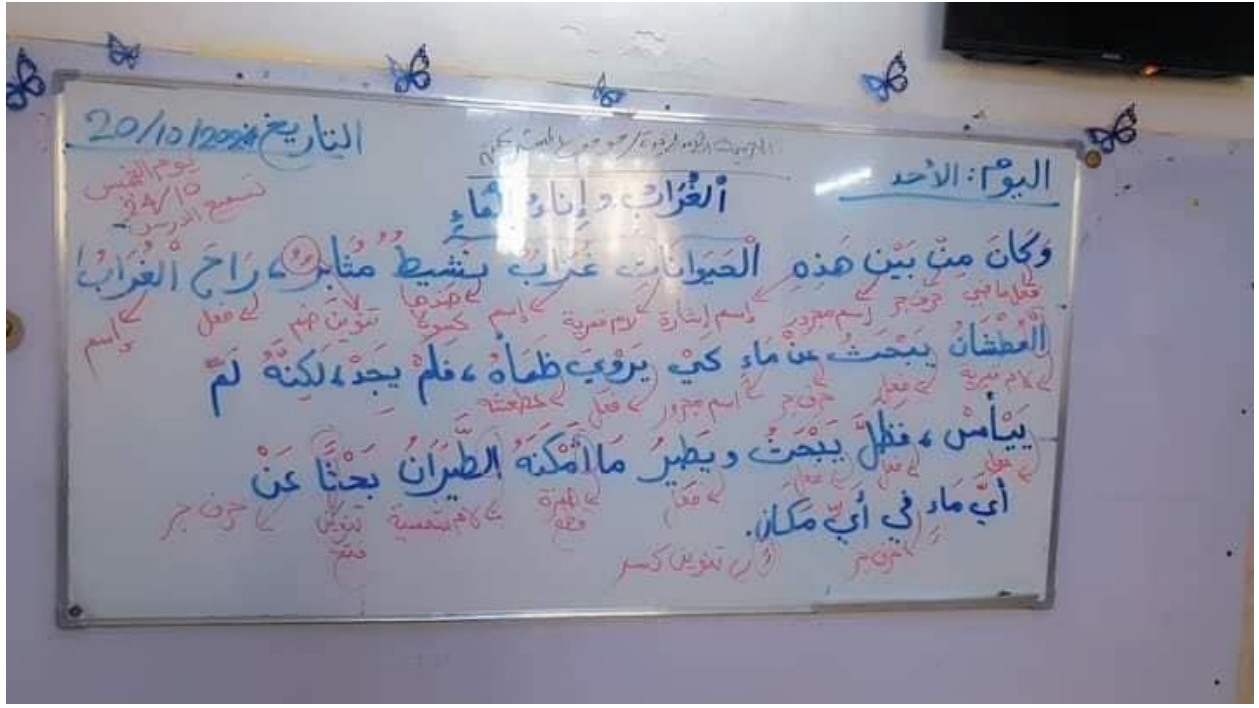 اليوم: الأحد
التاريخ 20/10/2024
يوم الخميس
24/10
تسميع الدرس
الغُرَابُ وإِنَاءُ المَاءِ
وَكَانَ مِنْ بَيْنِ هَذِهِ الْحَيَوَانَاتِ غُرَابٌ نَشِيطٌ مُثَابِرٌ، رَاحَ الْغُرَابُ
فعل ماضي حرف جر اسم مجرور اسم إشارة لام قمرية إسم ضدها تنوين ضم فعل إسم
الْعَطْشَانُ يَبْحَثُ عَنْ مَاءٍ كَيْ يَرْوِيَ ظَمَأَهُ، فَلَمْ يَجِدْ، لَكِنَّهُ لَمْ
لام قمرية فعل حرف جر اسم مجرور فعل عطشه
يَيْأَسْ، فَظَلَّ يَبْحَثُ ويَطِيرُ مَا أَمْكَنَهُ الطَّيَرَانُ بَحْثًا عَنْ
فعل فعل فعل فعل همزة قطع لام شمسية تنوين فتح حرف جر
أَيِّ مَاءٍ فِي أَيِّ مَكَانٍ.
حرف جر تنوين كسر